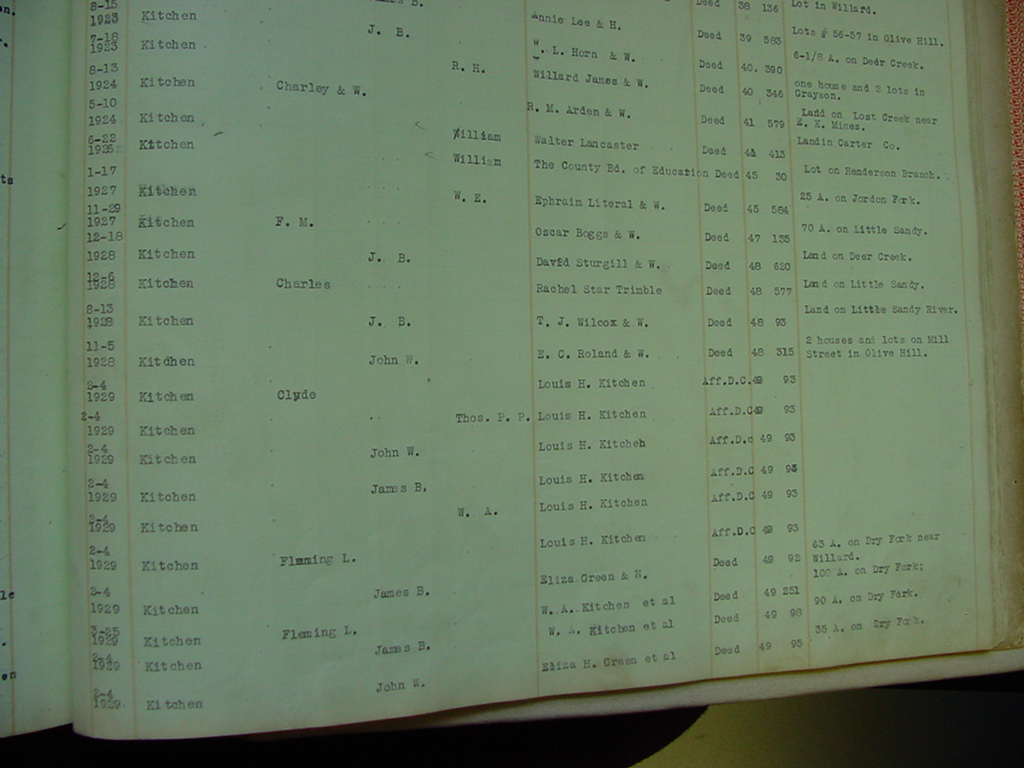 Annie Lee & H. Deed 38 136 Lot in Willard.
8-15
1923 Kitchen J. B. L. Horn & W. Deed 39 583 Lots # 56-57 in Olive Hill.
7-18
1923 Kitchen R. H. Willard James & W. Deed 40. 390 6-1/8 A. on Deer Creek.
8-13
1924 Kitchen Charley & W. R. M. Arden & W. Deed 40 346 one house and 2 lots in
Grayson.
5-10
1924 Kitchen William Walter Lancaster Deed 41 579 Land on Lost Creek near
E. K. Mines.
6-22
1925 Kitchen William The County Bd. of Education Deed 44 413 Landin Carter Co.
45 30 Lot on Henderson Branch.
1-17
1927 Kitchen W. E. Ephraim Literal & W. Deed 45 584 25 A. on Jordon Fork.
11-29
1927 Kitchen F. M. Oscar Boggs & W. Deed 47 135 70 A. on Little Sandy.
12-18
1928 Kitchen J. B. David Sturgill & W. Deed 48 620 Land on Deer Creek.
12-6
1928 Kitchen Charles Rachel Star Trimble Deed 48 577 Land on Little Sandy.
8-13
1928 Kitchen J. B. T. J. Wilcox & W. Deed 48 93 Land on Little Sandy River.
11-5
1928 Kitchen John W. E. C. Roland & W. Deed 48 315 2 houses and lots on Mill
Street in Olive Hill.
2-4
1929 Kitchen Clyde Louis H. Kitchen Aff.D.C.49 93
2-4
1929 Kitchen Thos. P. P. Louis H. Kitchen Aff.D.C49 93
2-4
1929 Kitchen John W. Louis H. Kitcheh Aff.D.c 49 93
2-4
1929 Kitchen James B, Louis H. Kitchen Aff.D.C 49 93
2-4
1929 Kitchen W. A. Louis H. Kitchen Aff.D.C 49 93
2-4
1929 Kitchen Flmming L. Louis H. Kitchen Aff.D.C 49 93
2-4
1929 Kitchen James B. Eliza Green & H. Deed 49 92 63 A. on Dry Fork near
Willard.
3-25
1929 Kitchen Fleming L. W. A. Kitchen et al Deed 49 251 100 A. on Dry Fork;
2-4
1929 Kitchen James B. W. A. Kitchen et al Deed 49 98 90 A. on Dry Fork.
2-4
1929 Kitchen John W. Eliza H. Green et al Deed 49 95 35 A. on Dry Fork.